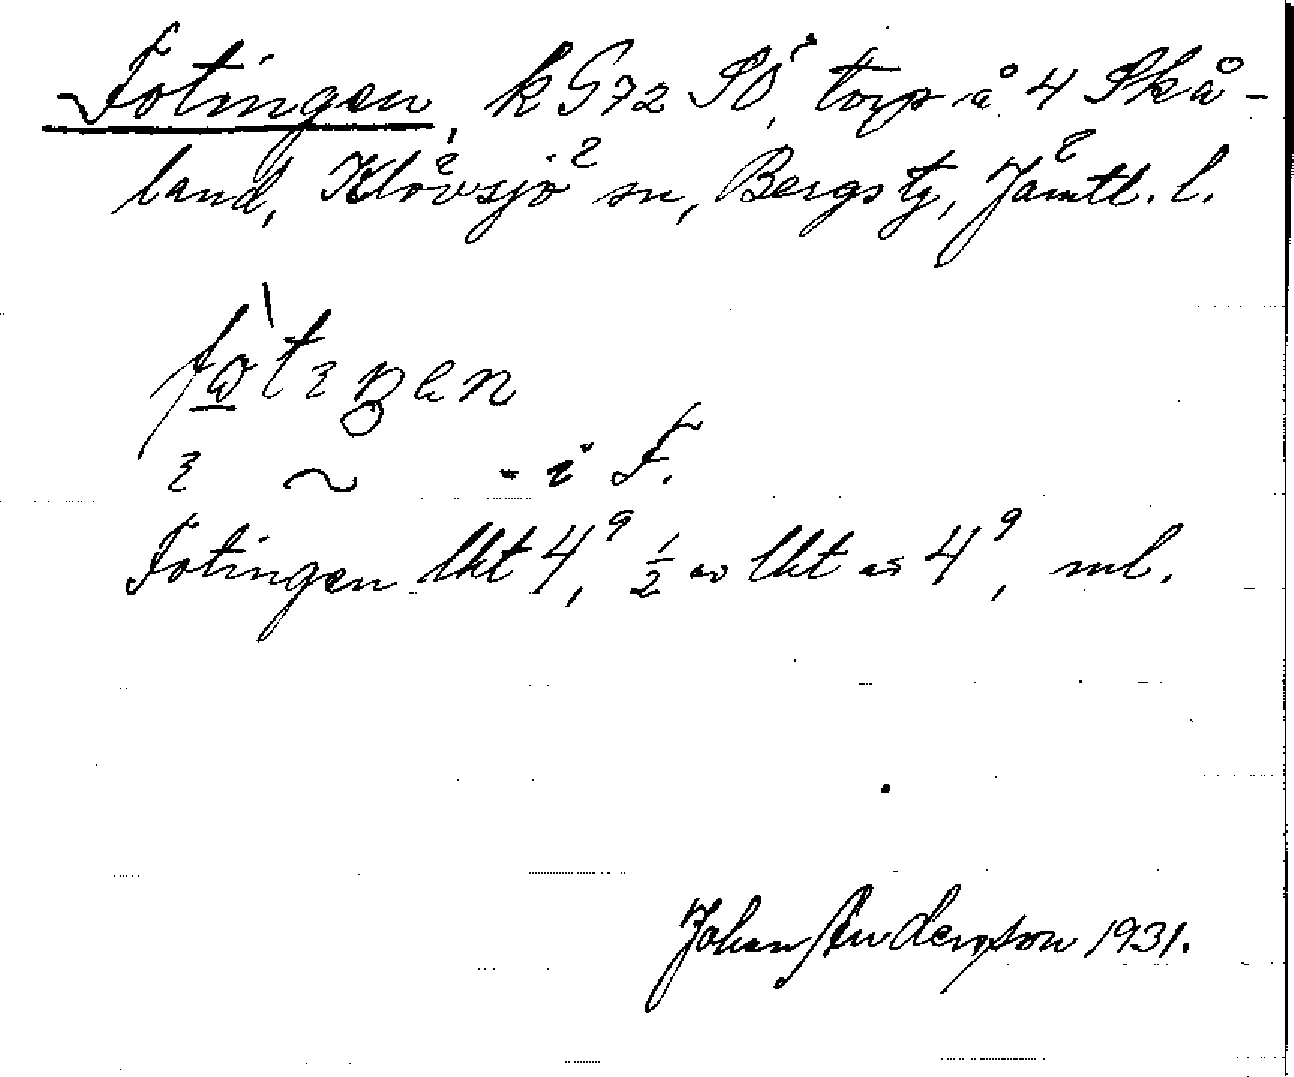 Fotingen, k G72 SÖ, torp å 4 Skå-
land, Klövsjö sn, Bergs tg, Jämtl. l.
i ~ - i F.
Fotingen lht 4⁹, ½ av lht av 4⁹, ml.
Johan Anderson 1931.